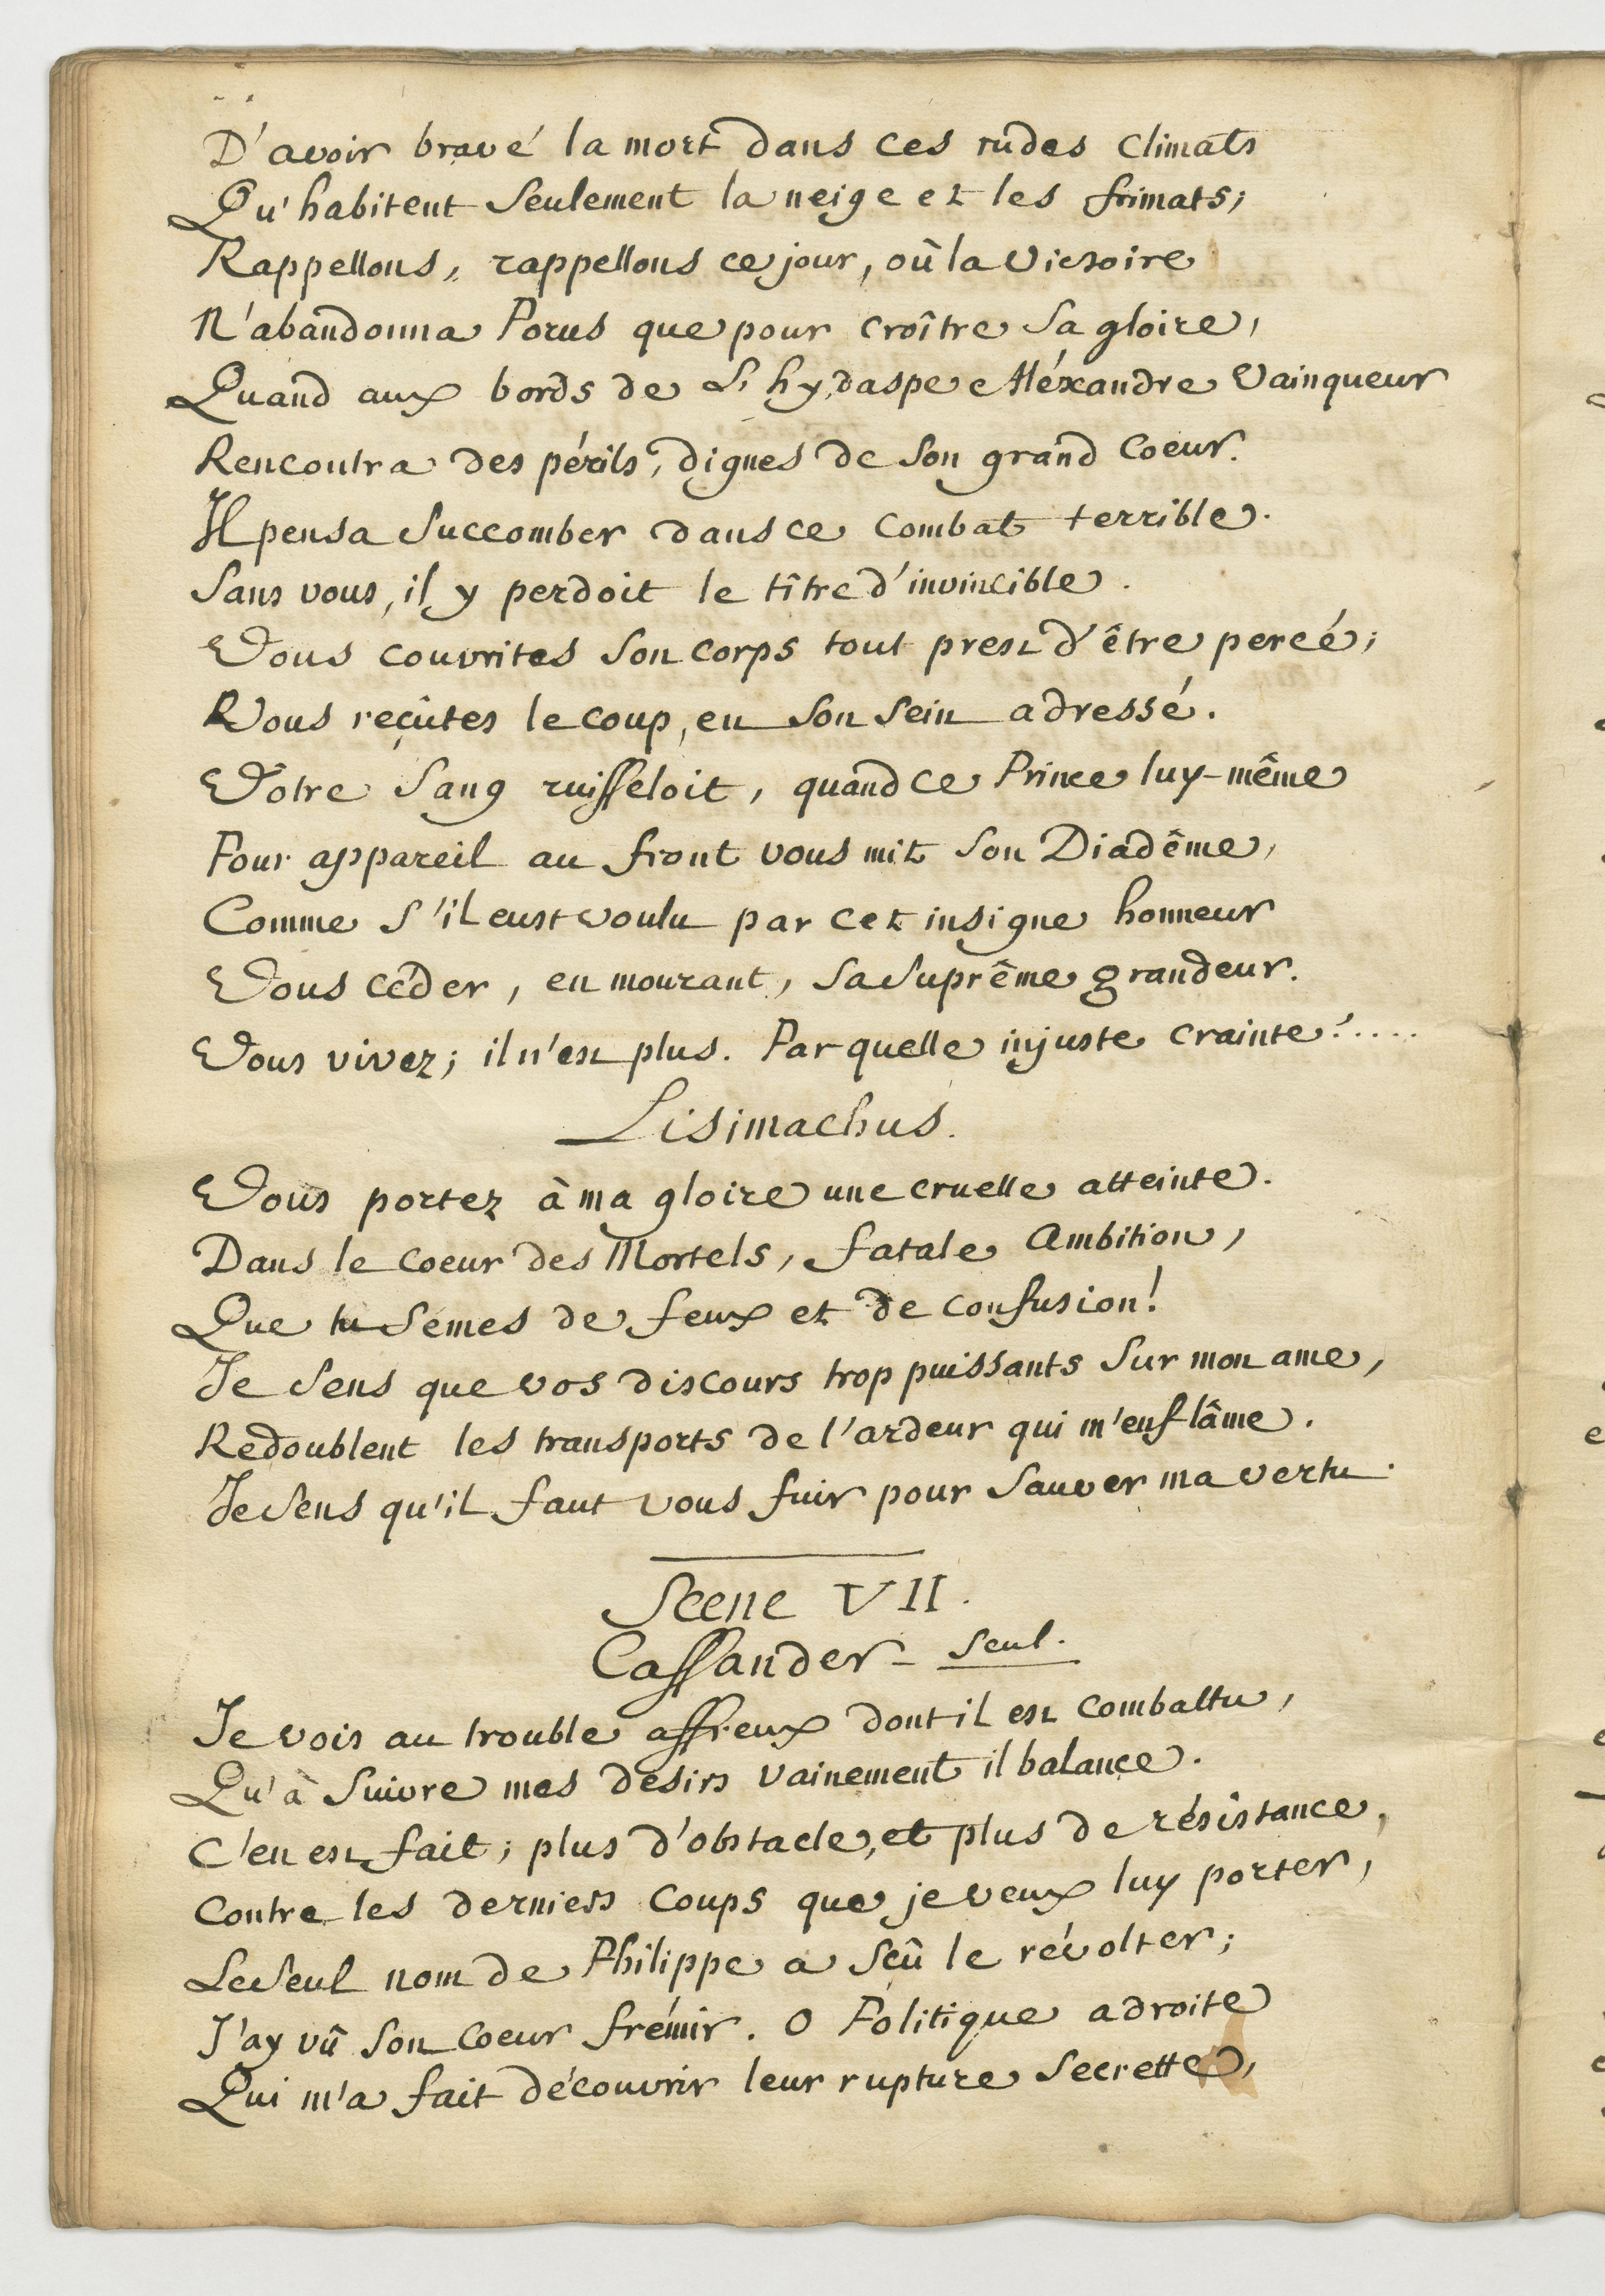 D'avoir bravé la mort dans ces rudes climats
Qu'habitent seulement la neige et les frimats;
Rappellons, rappellons ce jour, où la Victoire
N'abandonna Porus que pour croître sa gloire,
Quand aux bords de L'hydaspe Aléxandre Vainqueur
Rencontra des périls, dignes de son grand Coeur.
Il pensa succomber dans ce Combat terrible.
Sans vous, il y perdoit le tître d'invincible.
Vous couvrites son corps tout prest d'être percé;
Vous reçûtes le coup, en son sein adressé.
Vôtre sang ruisseloit, quand ce Prince luy-même
Pour appareil au front vous mit son Diadême,
Comme s'il eust voulu par cet insigne honneur
Vous céder, en mourant, sa suprême grandeur.
Vous vivez; il n'est plus. Par quelle injuste crainte?.....
Lisimachus.
Vous portez à ma gloire une cruelle atteinte.
Dans le coeur des Mortels, fatale Ambition,
Que tu sémes de feux et de confusion!
Je sens que vos discours trop puissants sur mon ame,
Redoublent les transports de l'ardeur qui m'enflâme.
Je sens qu'il faut vous fuir pour sauver ma vertu.
Scene VII.
Cassander - seul.
Je vois au trouble affreux dont il est combattu,
Qu'à suivre mes desirs vainement il balance.
C'en est fait; plus d'obstacle, et plus de résistance,
Contre les derniers coups que je veux luy porter,
Le seul nom de Philippe a sçû le révolter;
J'ay vû son coeur frémir. O Politique adroite
Qui m'a fait découvrir leur rupture secrette,